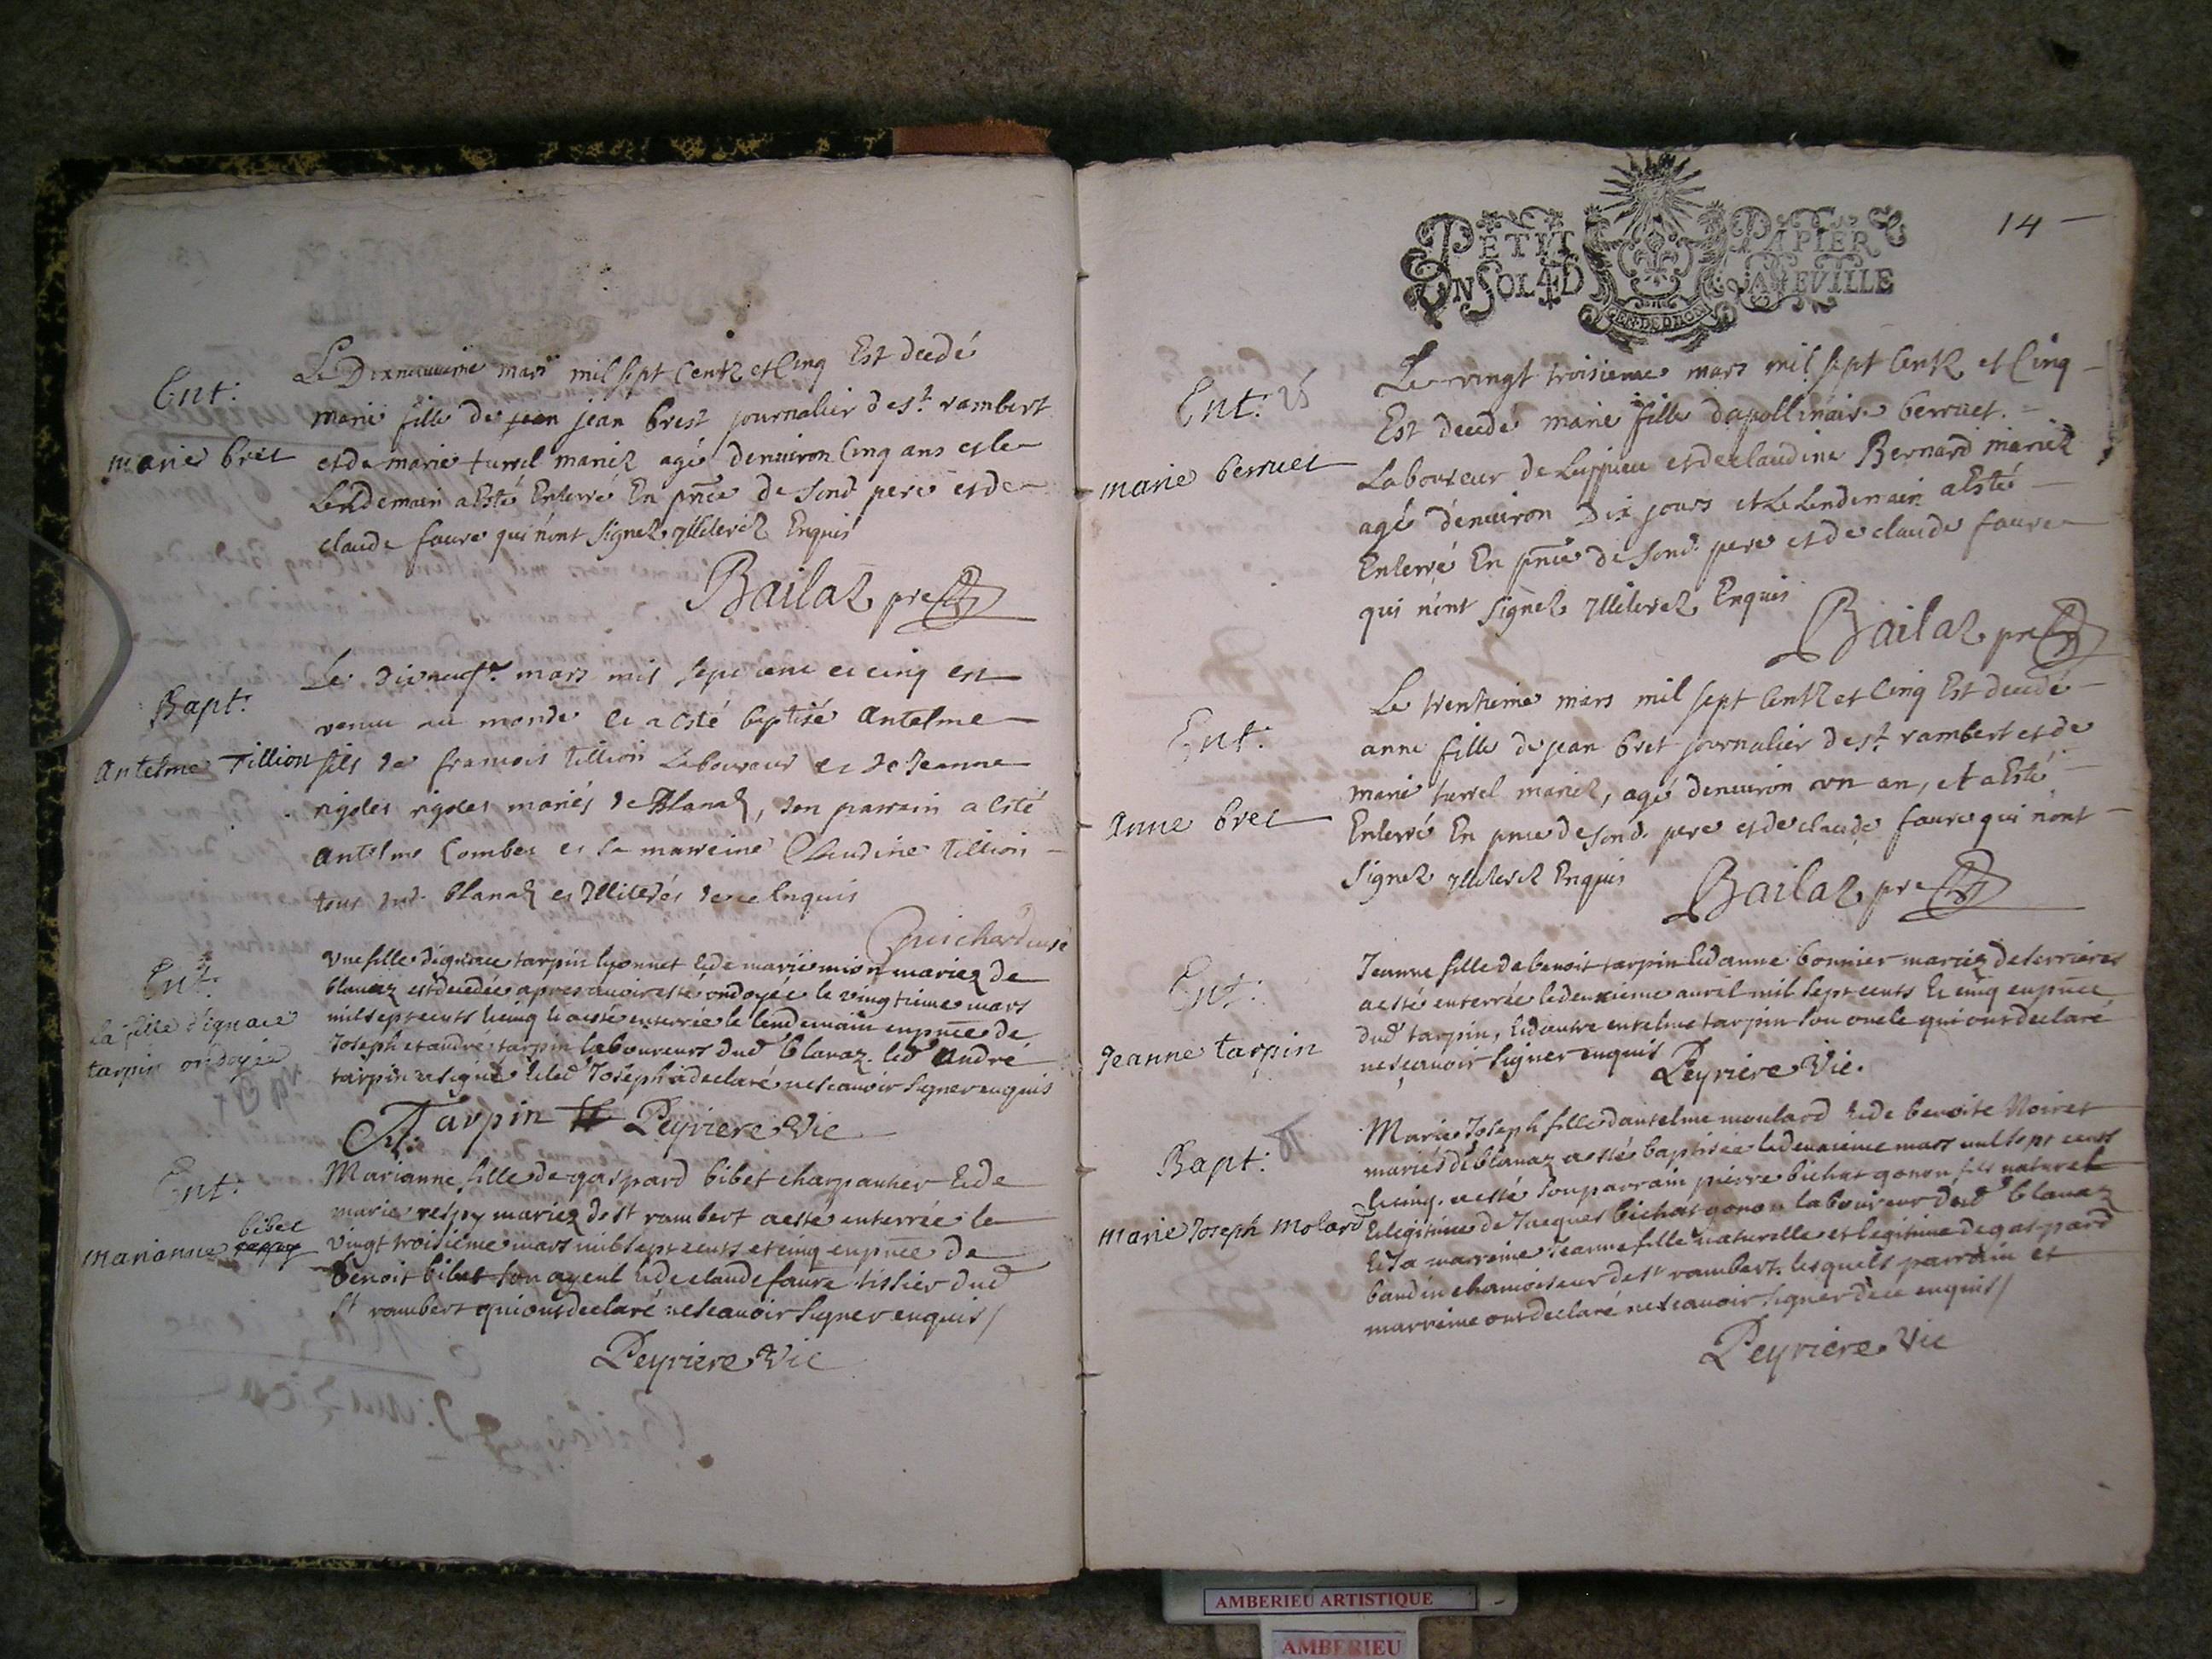 Ent:
marie bret
Le Dixneuvieme mars mil sept Centz et Cinq Est decedé
marie fille de jean jean brest journalier de st. rambert
et de marie turrel mariez agé denviron Cinq ans et le
Lendemain a Esté Enterré En pnce de sond. pere et de
claude faure qui n'ont signez illiterez Enquis
Bailaz pre
Bapt:
Antelme Tillion
Le dixneufe. mars mil sept cent et cinq est
venu au monde et a esté baptisé Antelme
fils de francois tillion Laboureur et de Jeanne
rigoles rigoles mariés de Blanaz, son parrain a esté
antelme Combet et sa marreine Claudine tillion
tous dud. blanaz et Illiterés de ce Enquis
Guichard curé
Ent:
la fille d'ignace
tarpin ondoyée
vne fille d'ignace tarpin lyonnet & de marie mion mariez de
blanaz est decedée apres avoir esté ondoyée le vingtieme mars
mil sept cents & cinq & a esté enterrée le lendemain en pnce de
Joseph et andre tarpin laboureurs dud blanaz. led André
tarpin a signé & led Joseph a declaré ne scavoir signer enquis
A. Tarpin Peyriere Vic
Ent:
bibet
marianne
Marianne fille de gaspard bibet charpantier & de
marie respy mariez de st rambert a esté enterrée le
vingt troisieme mars mil sept cents et cinq en pnce de
benoit bibet son ayeul & de claude faure tissier dud
st rambert qui ont declaré ne scavoir signer enquis/
Peyriere Vic
PETIT PAPIER
UN SOL 4 D LA FEVILLE
14
Ent:
marie berruet
Le vingt troisieme mars mil sept Centz et Cinq
Est decedé marie fille d'apollinaire berruet.
Laboureur de Luppieu et de claudine Bernard mariez
agé denviron Dix jours et Le Lendemain a Esté
Enterré En pnce de sond. pere et de claude faure
qui n'ont signez illiterez Enquis
Bailaz pre
Ent:
Anne bret
Le trentieme mars mil sept Centz et Cinq Est decedé
anne fille de jean bret journalier de st. rambert et de
marie turrel mariez, agé denviron vn an, et a Esté
Enterré En pnce de sond. pere et de claude faure qui n'ont
signez illiterez Enquis
Bailaz pre
Ent:
Jeanne tarpin
Jeanne fille de benoit tarpin & d'anne bonnier mariez de serrieres
a esté enterrée le deuxieme avril mil sept cents & cinq en pnce
dud tarpin, & d'autre antelme tarpin son oncle qui ont declaré
ne scavoir signer enquis
Peyriere Vic.
Bapt:
marie Joseph Molard
Marie Joseph fille d'antelme moulard & de benoite Noiret
mariés de blanaz a esté baptisée le deuxieme mars mil sept cents
& cinq. a esté son parrain pierre bichat gonon fils naturel
& legitime de Jacques bichat gonon laboureur dud blanaz
& sa marreine Jeanne fille naturelle et legitime de gaspard
baudin chamoiseur de st rambert. lesquels parrain et
marreine ont declaré ne scavoir signer de ce enquis/
Peyriere Vic
AMBERIEU ARTISTIQUE
AMBERIEU